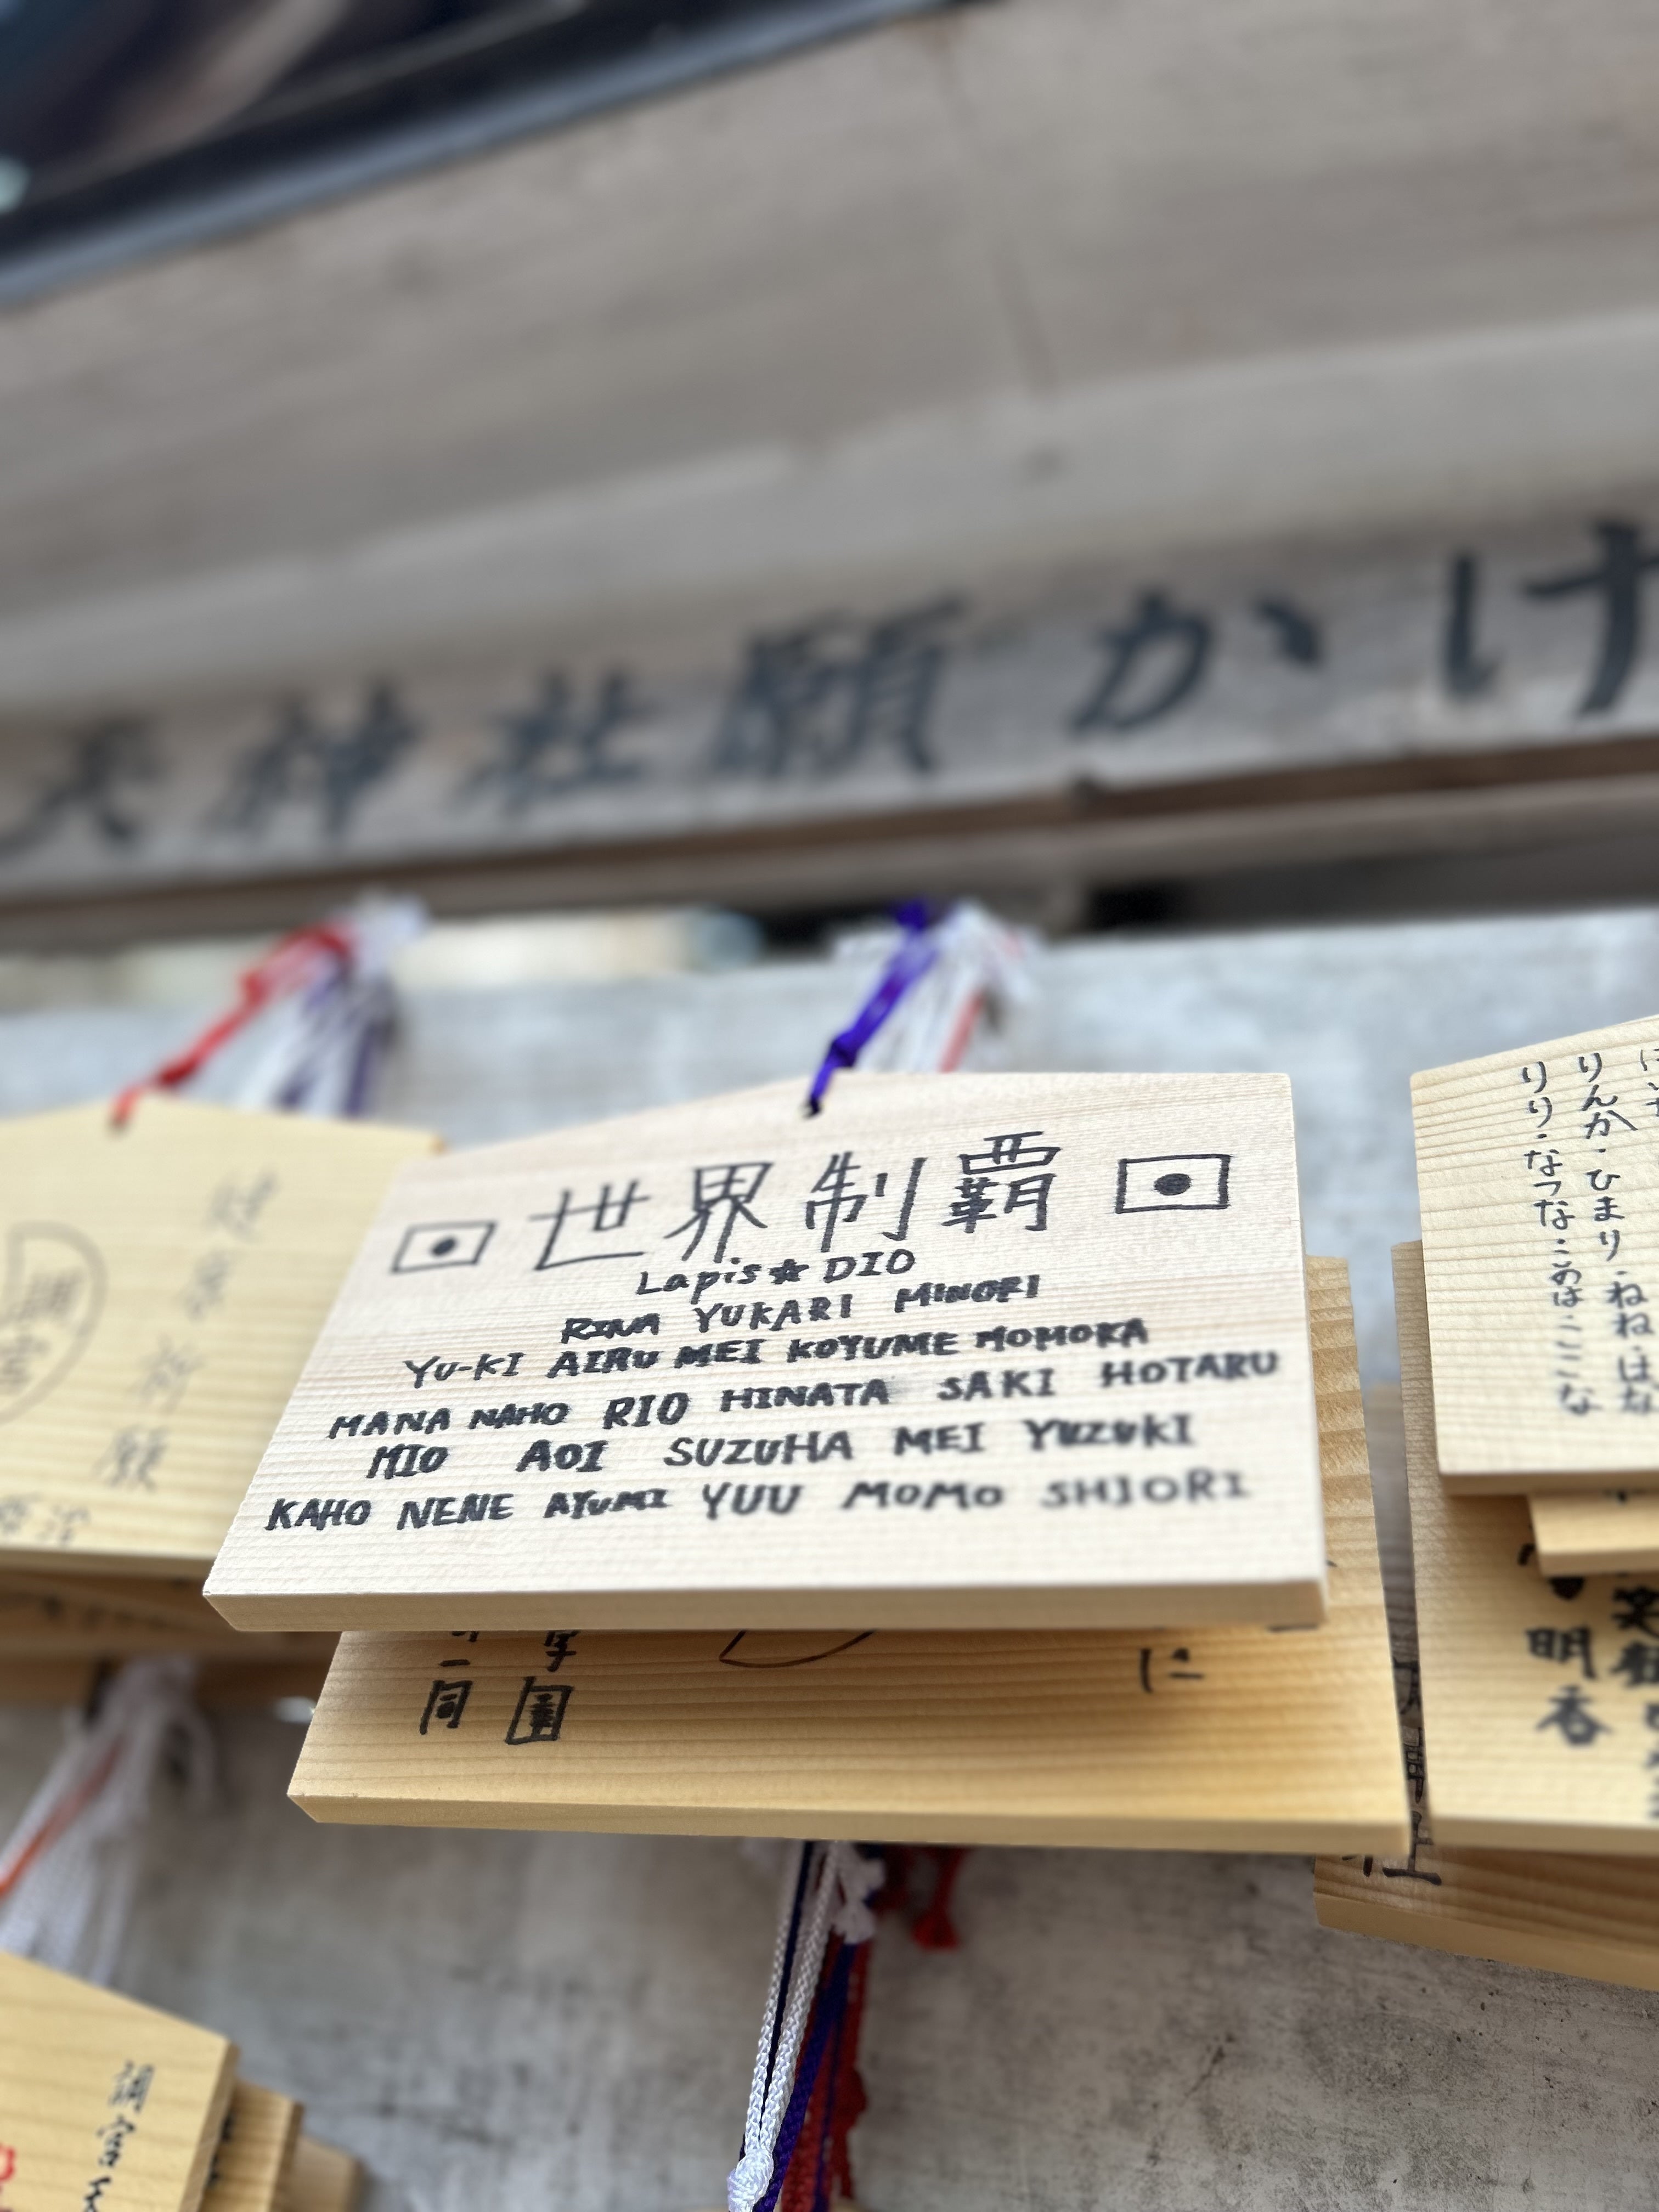 天神社願かけ
世界制覇
Lapis☆DIO
RINA YUKARI MINORI
YU-KI AIRU MEI KOYUME MOMOKA
MANA NAHO RIO HINATA SAKI HOTARU
MIO AOI SUZUHA MEI YUZUKI
KAHO NENE AYUMI YUU MOMO SHIORI
りんか・ひまり・ねね・はな
りり・なつな・このは・ここな
祈願
調宮
学園
一同
に
明香
調宮天